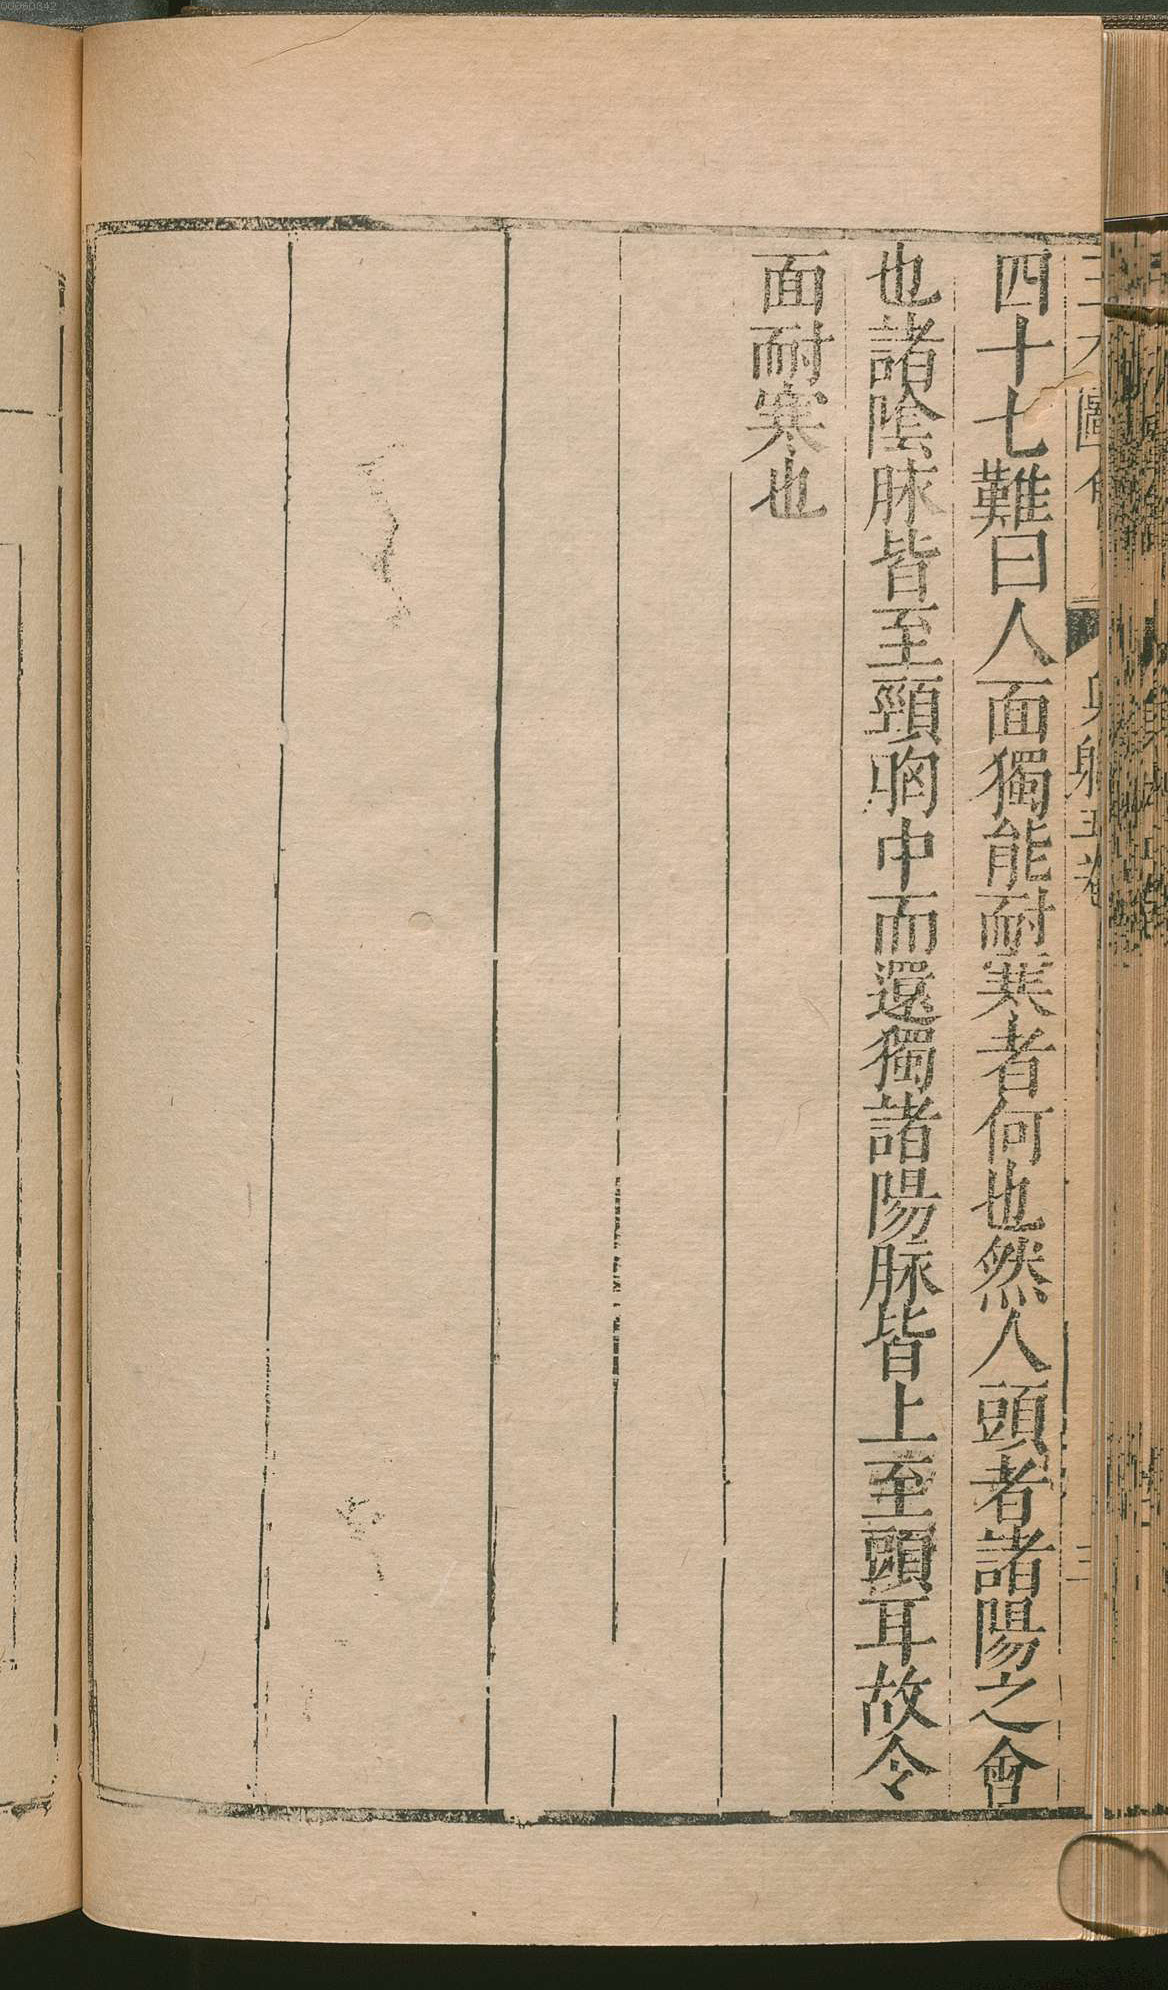 四十七難曰人面獨能耐寒者何也然人頭者諸陽之會
也諸陰脉皆至頸胸中而還獨諸陽脉皆上至頭耳故令
面耐寒也
00060342